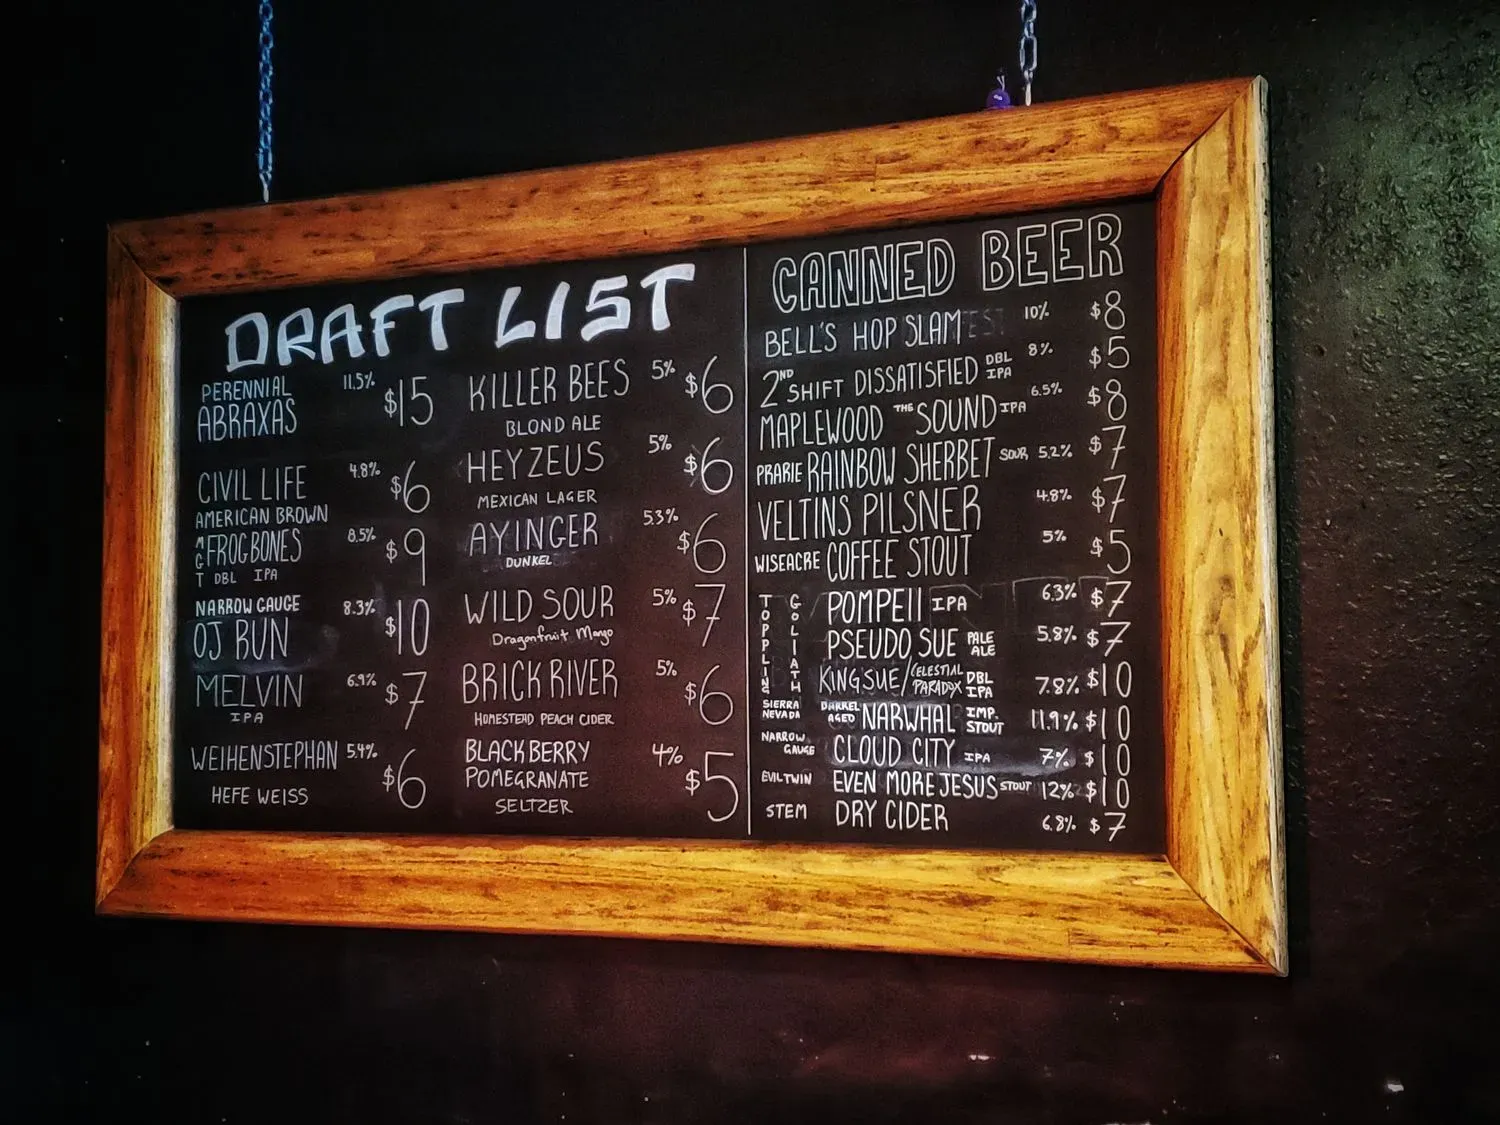 DRAFT LIST
PERENNIAL 11.5%
ABRAXAS $15
CIVIL LIFE 4.8% $6
AMERICAN BROWN
MGT FROGBONES 8.5% $9
DBL IPA
NARROW GAUGE 8.3%
OJ RUN $10
MELVIN 6.9% $7
IPA
WEIHENSTEPHAN 5.4% $6
HEFE WEISS
KILLER BEES 5% $6
BLOND ALE
HEY ZEUS 5% $6
MEXICAN LAGER
AYINGER 5.3% $6
DUNKEL
WILD SOUR 5% $7
Dragonfruit Mango
BRICK RIVER 5% $6
HOMESTEAD PEACH CIDER
BLACKBERRY 4% $5
POMEGRANATE
SELTZER
CANNED BEER
BELL'S HOP SLAM 10% $8
2ND SHIFT DISSATISFIED DBL IPA 8% $5
MAPLEWOOD THE SOUND IPA 6.5% $8
PRARIE RAINBOW SHERBET SOUR 5.2% $7
VELTINS PILSNER 4.8% $7
WISEACRE COFFEE STOUT 5% $5
TOPPLING GOLIATH
POMPEII IPA 6.3% $7
PSEUDO SUE PALE ALE 5.8% $7
KING SUE/CELESTIAL PARADOX DBL IPA 7.8% $10
SIERRA NEVADA BARREL AGED NARWHAL IMP. STOUT 11.9% $10
NARROW GAUGE CLOUD CITY IPA 7% $10
EVIL TWIN EVEN MORE JESUS STOUT 12% $10
STEM DRY CIDER 6.8% $7